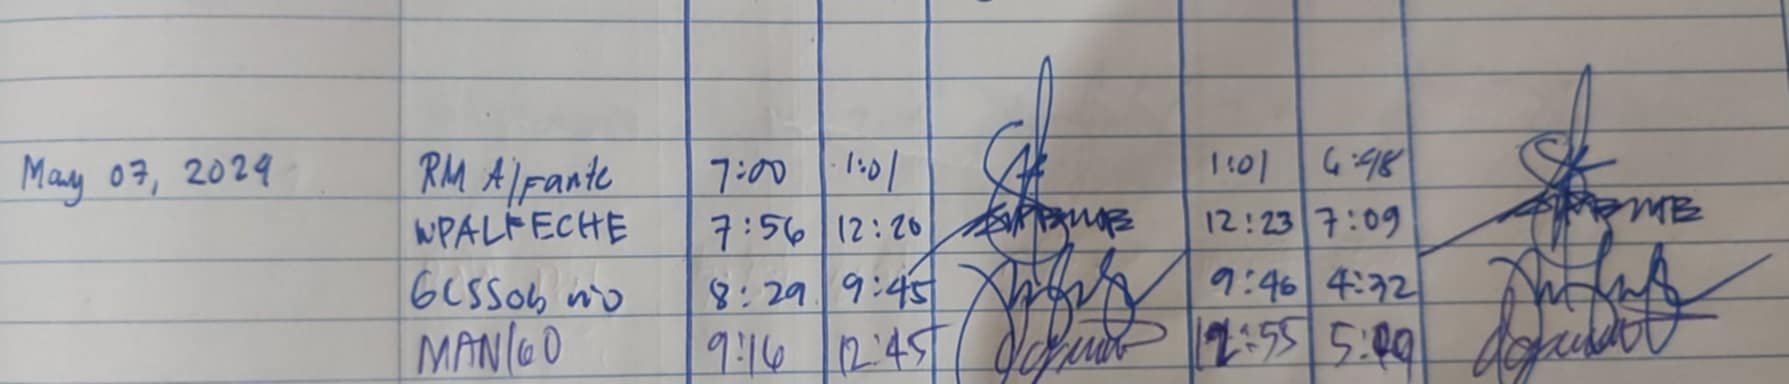 May 07, 2024 RM Alfante 7:00 1:01 1:01 6:48
WPALFECHE 7:56 12:20 12:23 7:09
GCSSobrio 8:29 9:45 9:46 4:32
MANIGO 9:16 12:45 12:55